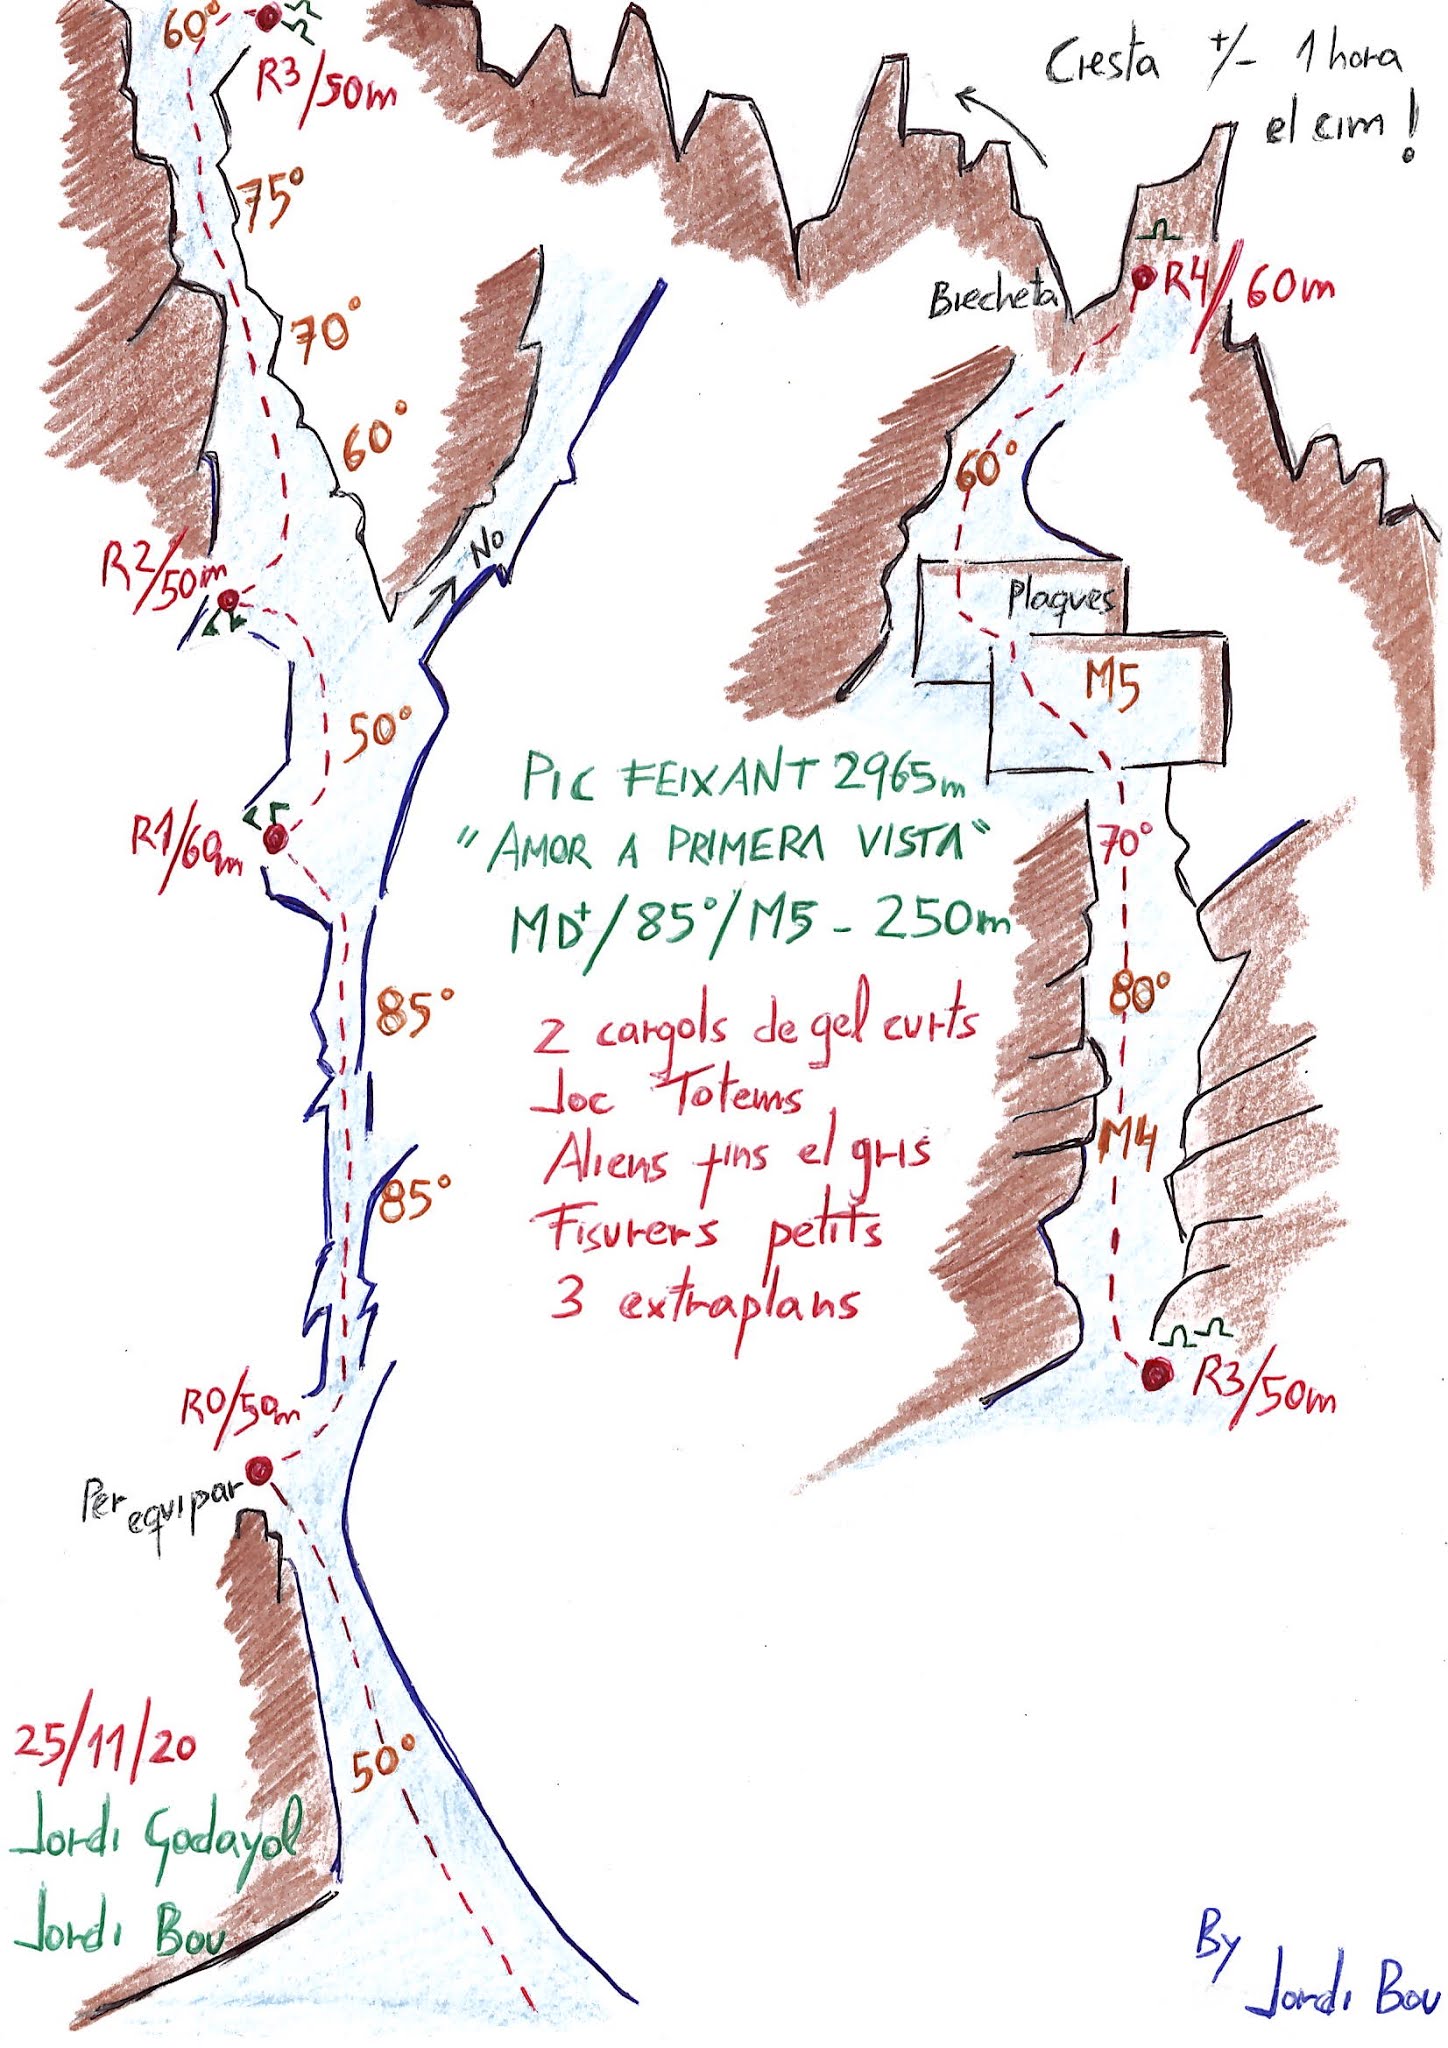 60°
R3/50m
75°
70°
60°
No
R2/50m
50°
R1/60m
85°
85°
R0/50m
Per equipar
50°
25/11/20
Jordi Godayol
Jordi Bou
Cresta +/- 1 hora
el cim!
Brecheta
R4/60m
60°
Plaques
M5
70°
80°
M4
R3/50m
PIC FEIXANT 2965m
"AMOR A PRIMERA VISTA"
MD+/85°/M5 - 250m
2 cargols de gel curts
Joc Totems
Aliens fins el gris
Fisurers petits
3 extraplans
By
Jordi Bou